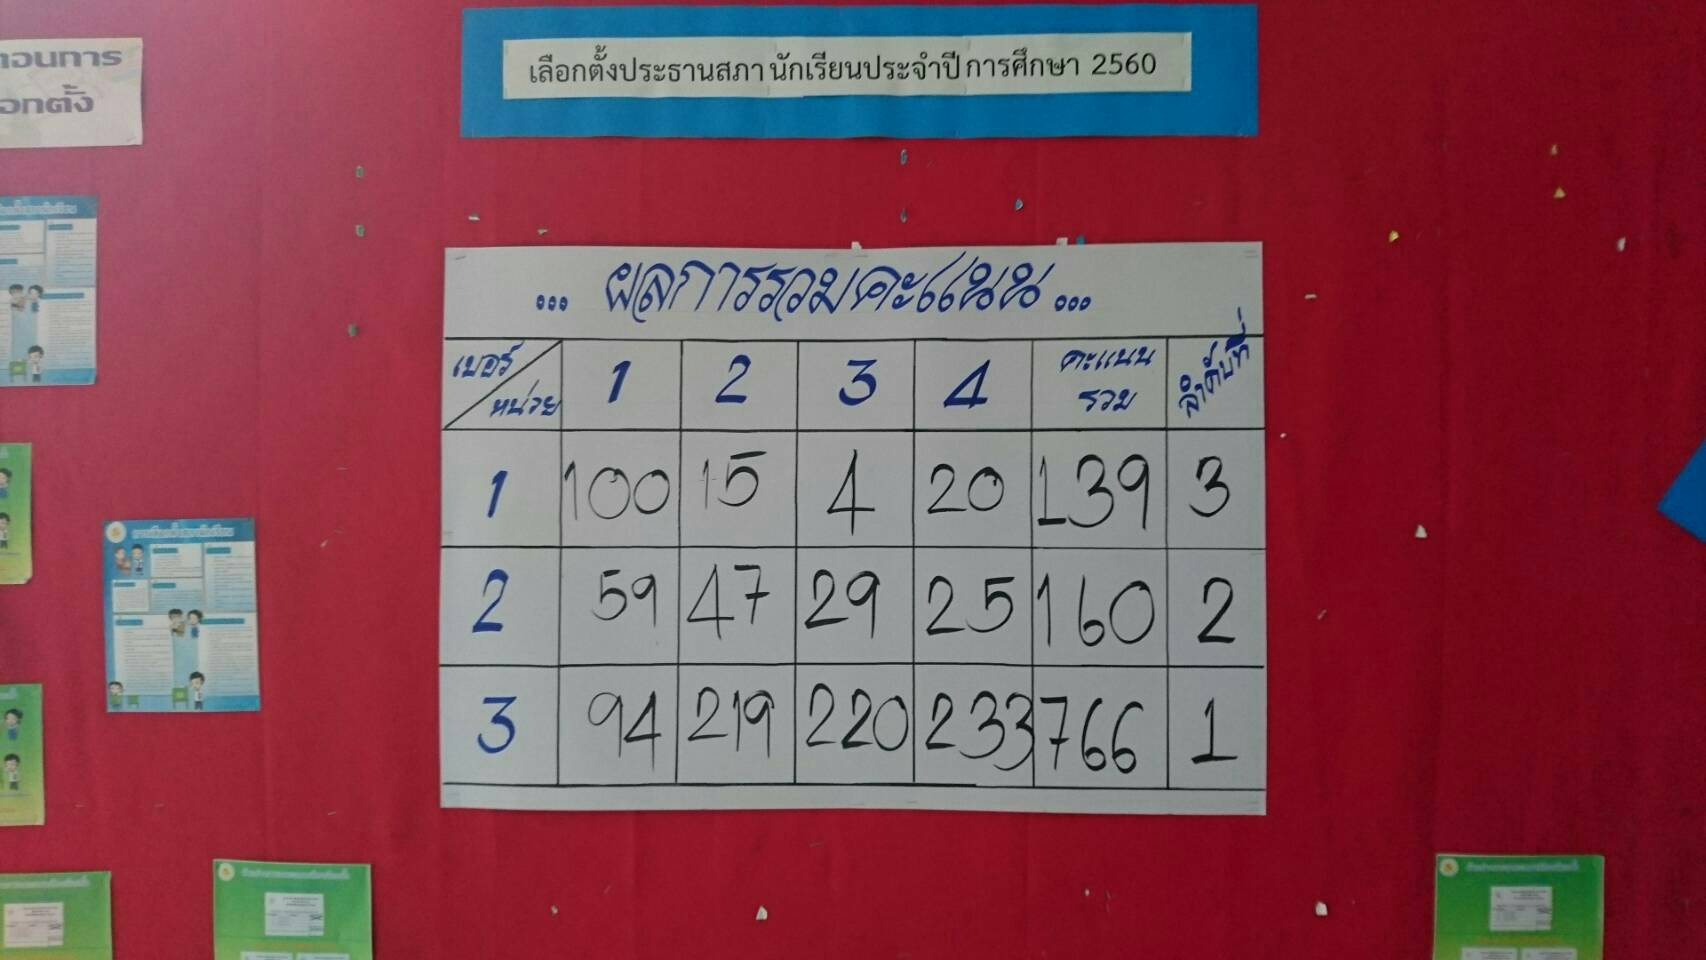 เลือกตั้งประธานสภานักเรียนประจำปีการศึกษา 2560
อนการ
อกตั้ง
... ผลการรวมคะแนน ...
เบอร์ หน่วย 1 2 3 4 คะแนน รวม ลำดับที่
1 100 15 4 20 139 3
2 59 47 29 25 160 2
3 94 219 220 233 766 1